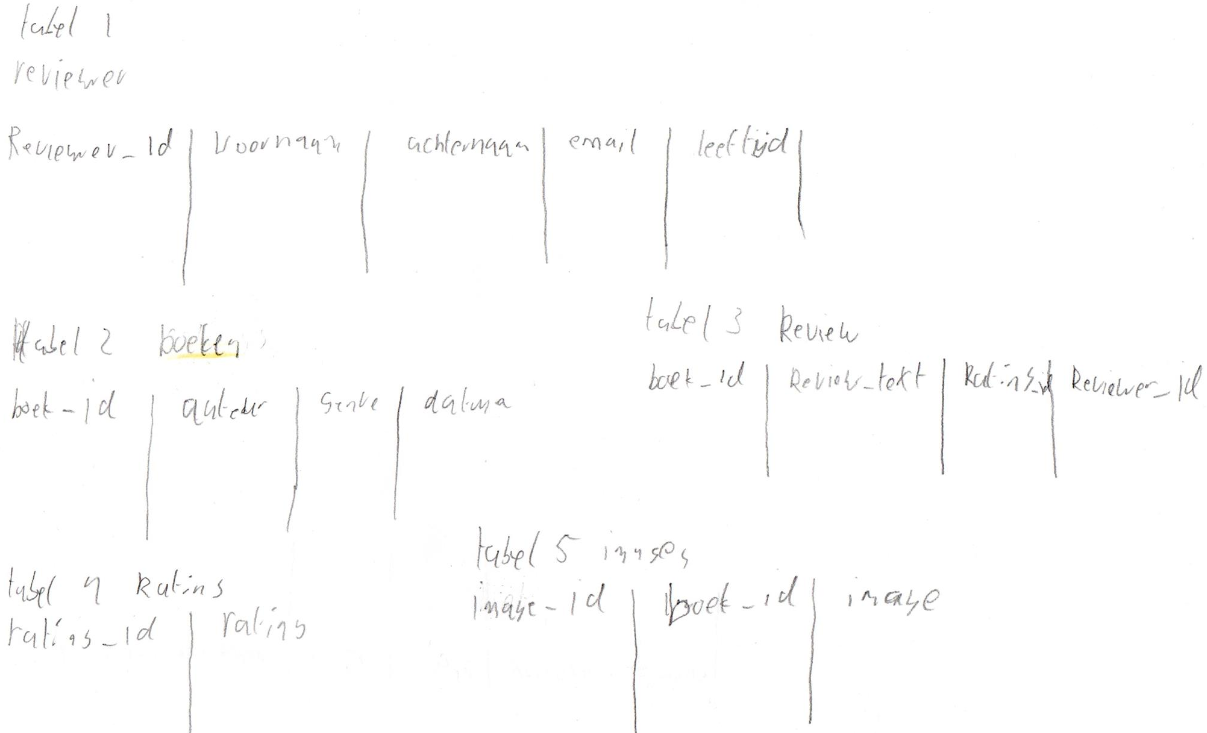 tabel 1
reviewer
Reviewer_id voornaam achternaam email leeftijd
tabel 2 boeken
boek_id auteur genre datum
tabel 3 Review
boek_id Review_text Rating_id Reviewer_id
tabel 4 Rating
rating_id rating
tabel 5 images
image_id boek_id image